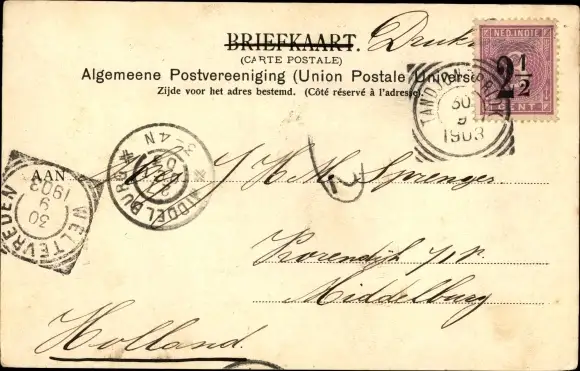 BRIEFKAART. Drukw
(CARTE POSTALE)
Algemeene Postvereeniging (Union Postale Universe
Zijde voor het adres bestemd. (Côté réservé à l'adresse
NED. INDIE
2 1/2
CENT
TANDJONG PRIOK
30
9
1903
MIDDELBURG
3-4N
AAN
WELTEVREDEN
30
9
1903
J H M Sprenger
Middelburg
Holland.